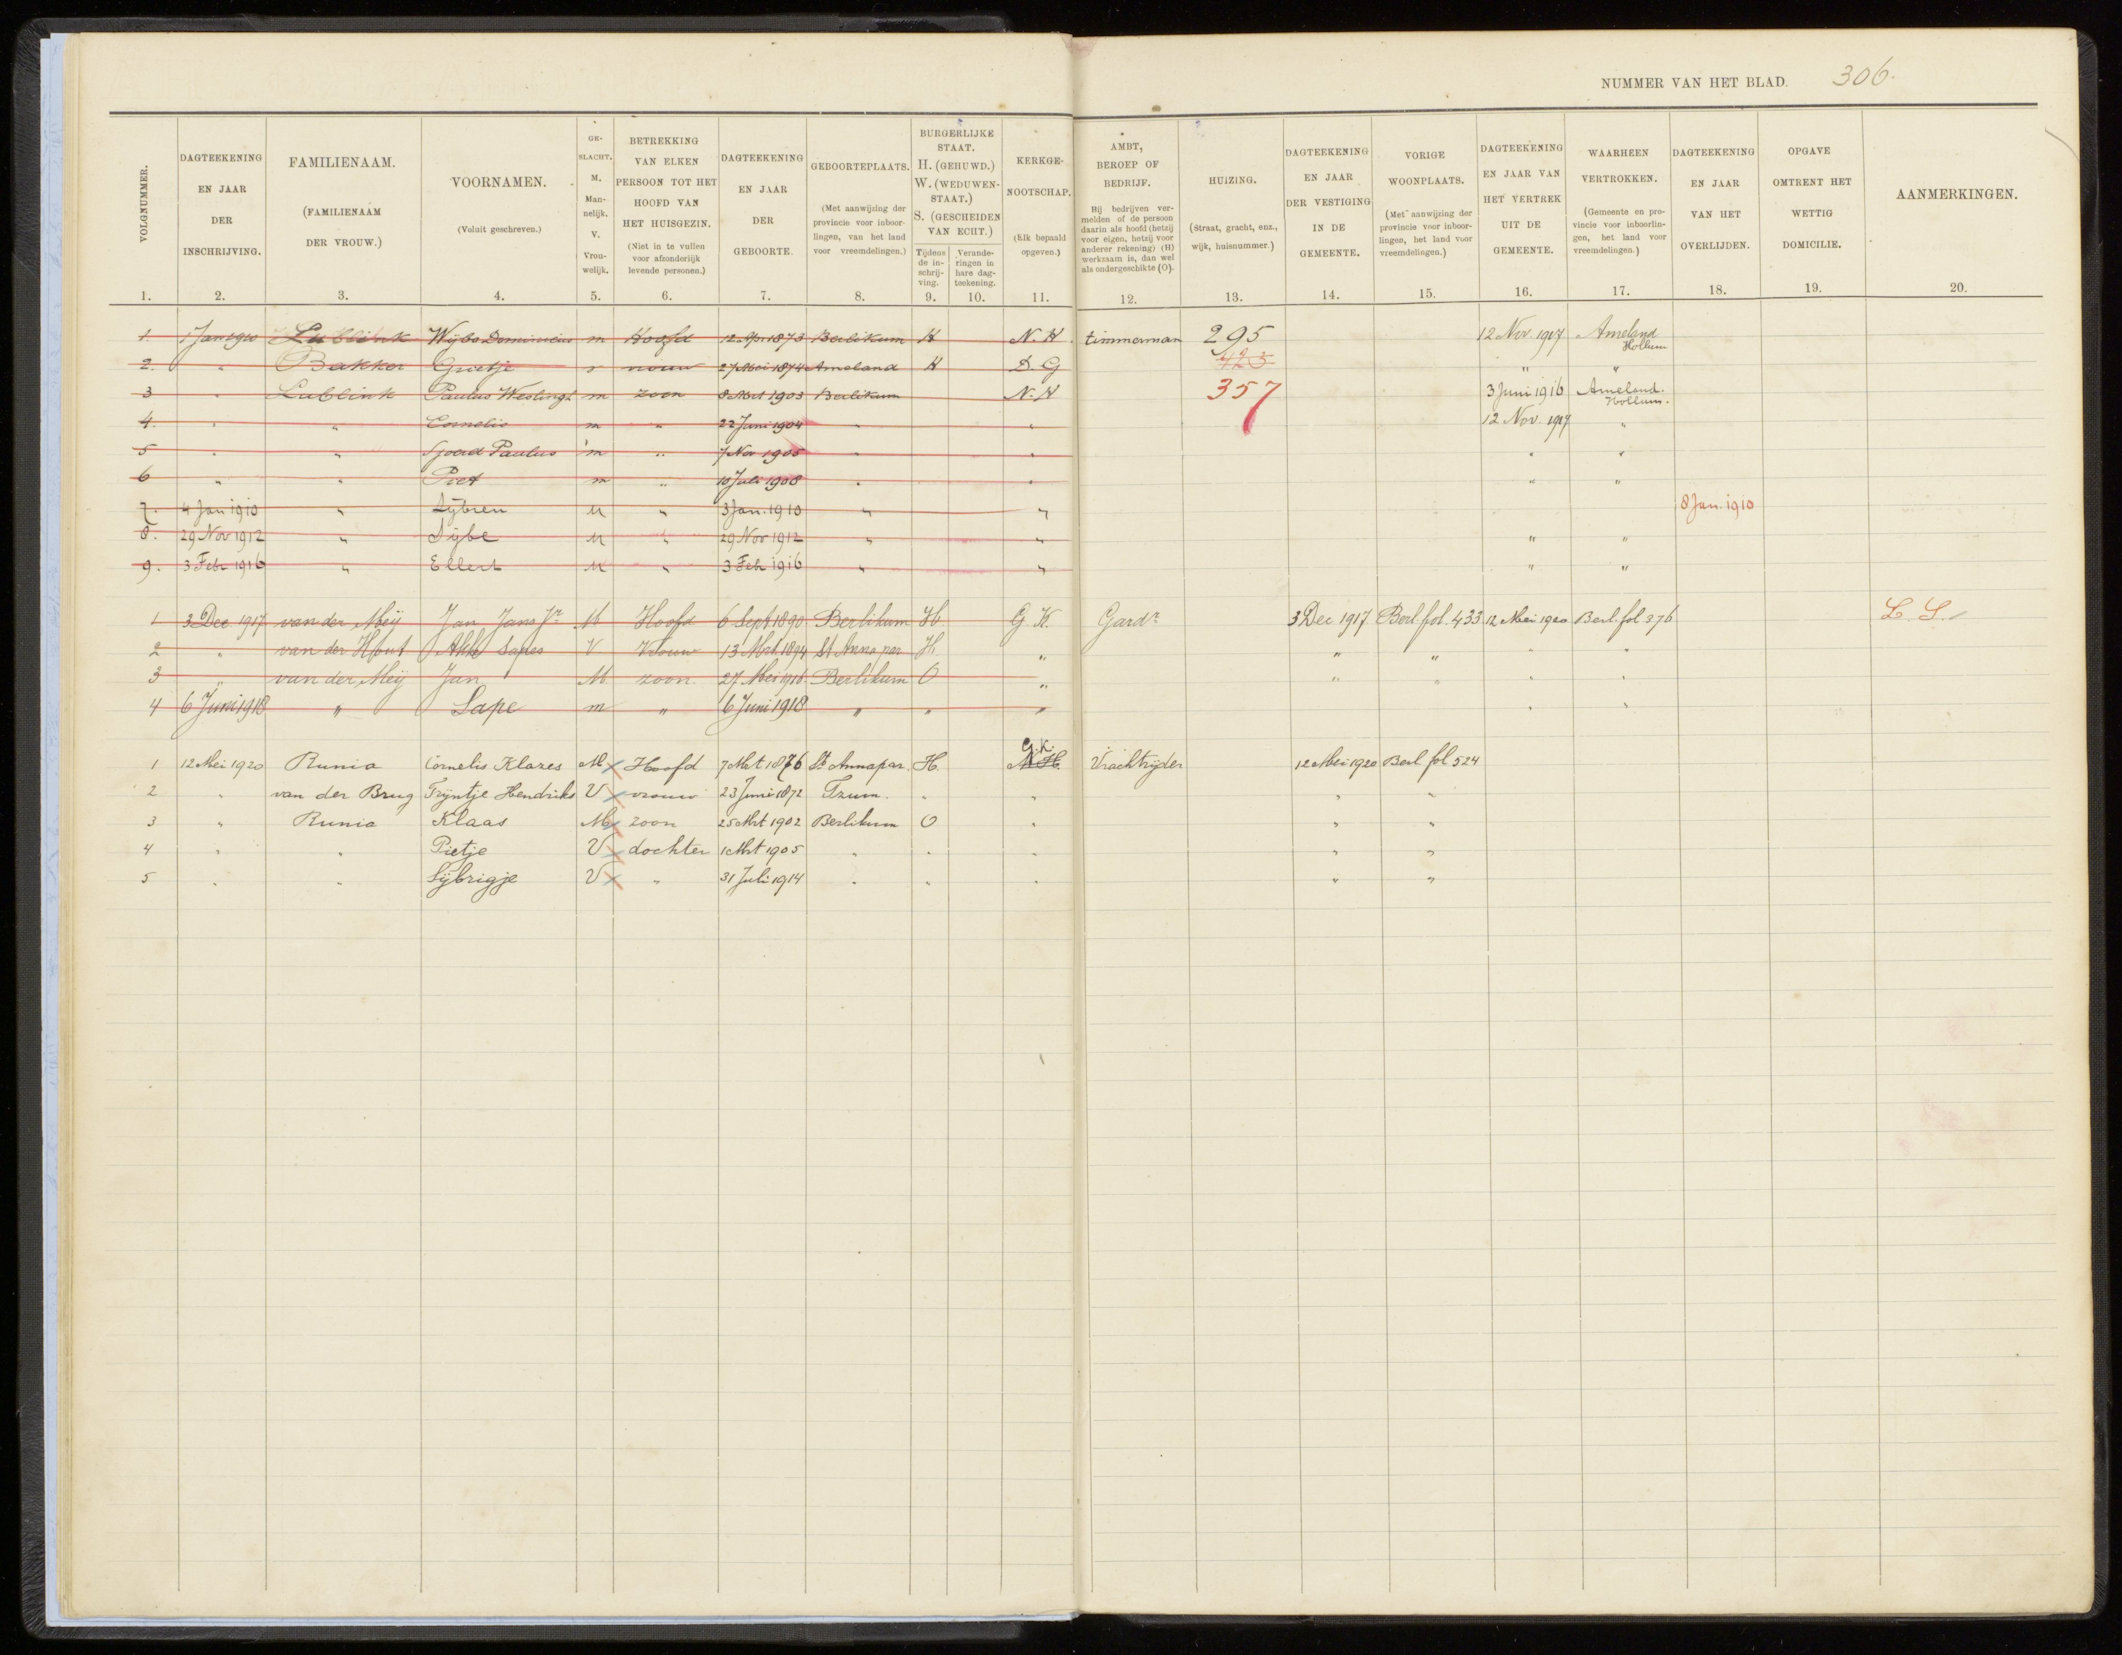 NUMMER VAN HET BLAD. 306.
VOLGNUMMER. DAGTEEKENING EN JAAR DER INSCHRIJVING. FAMILIENAAM. (FAMILIENAAM DER VROUW.) VOORNAMEN. (Voluit geschreven.) GESLACHT. M. Mannelijk. V. Vrouwelijk. BETREKKING VAN ELKEN PERSOON TOT HET HOOFD VAN HET HUISGEZIN. (Niet in te vullen voor afzonderlijk levende personen.) DAGTEEKENING EN JAAR DER GEBOORTE. GEBOORTEPLAATS. (Met aanwijzing der provincie voor inboorlingen, van het land voor vreemdelingen.) BURGERLIJKE STAAT. H. (GEHUWD.) W. (WEDUWENSTAAT.) S. (GESCHEIDEN VAN ECHT.) Tijdens de inschrijving. Veranderingen in hare dagteekening. KERKGENOOTSCHAP. (Elk bepaald opgeven.) AMBT, BEROEP OF BEDRIJF. Bij bedrijven vermelden of de persoon daarin als hoofd (hetzij voor eigen, hetzij voor anderer rekening) (H) werkzaam is, dan wel als ondergeschikte (O). HUIZING. (Straat, gracht, enz., wijk, huisnummer.) DAGTEEKENING EN JAAR DER VESTIGING IN DE GEMEENTE. VORIGE WOONPLAATS. (Met aanwijzing der provincie voor inboorlingen, het land voor vreemdelingen.) DAGTEEKENING EN JAAR VAN HET VERTREK UIT DE GEMEENTE. WAARHEEN VERTROKKEN. (Gemeente en provincie voor inboorlingen, het land voor vreemdelingen.) DAGTEEKENING EN JAAR VAN HET OVERLIJDEN. OPGAVE OMTRENT HET WETTIG DOMICILIE. AANMERKINGEN.
1. 2. 3. 4. 5. 6. 7. 8. 9. 10. 11. 12. 13. 14. 15. 16. 17. 18. 19. 20.
1. 1 Jan 1910 Lubblink Wijbo Dominicus m Hoofd 12 Apr. 1873 Berlikum H N. H. timmerman 295 12 Nov. 1917 Ameland Hollum
2. " Bakker Grietje v vrouw 27 Mei 1874 Ameland H D. G 423 " "
3 " Lubblink Paulus m zoon 8 Mrt 1903 Berlikum N. H 357 3 Juni 1916 Ameland. Hollum.
4. " " Cornelis m " 22 Juni 1904 " " 12 Nov. 1917 "
5 " " Sjoerd Paulus m " 7 Nov 1905 " " " "
6 " " Piet m " 10 Juli 1908 " " " "
7. 4 Jan 1910 " Sijbren M " 3 Jan. 1910 " " 8 Jan. 1910
8. 29 Nov 1912 " Sijbe M " 29 Nov 1912 " " " "
9. 3 Febr 1916 " Ellert M " 3 Feb 1916 " " " "
1 3 Dec 1917 van der Meij Jan Jans Jr M Hoofd 6 Sept 1890 Berlikum H. G. K. Gardr 3 Dec 1917 Berl. fol. 433 12 Mei 1920 Berl. fol 376 L. S.
2 " van der Hout Akke Sapes V Vrouw 13 Mrt. 1894 St Anna par H. " " " " "
3 " van der Meij Jan M. zoon. 27 Mei 1916. Berlikum O " " " " "
4 6 Juni 1918 " Sape m " 6 Juni 1918 " " " " "
1 12 Mei 1920 Runia Cornelis Klazes M Hoofd 7 Mrt 1876 St Annapar. H. G. K. N. H. Vrachtrijder 12 Mei 1920 Berl fol 524
2 " van der Brug Trijntje Hendriks V vrouw 23 Juni 1872 Tzum. " " " "
3 " Runia Klaas M zoon 25 Mrt 1902 Berlikum O " " "
4 " " Pietje V dochter 1 Mrt 1905 " " " " "
5 " " Sijbrigje V " 31 Juli 1914 " " " " "